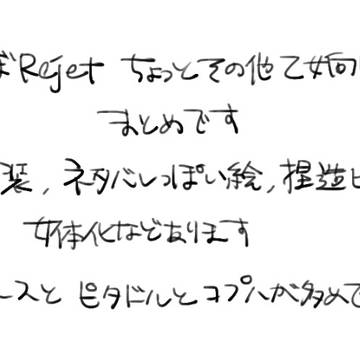 ばRejet ちょっとその他乙女向
まとめです
装,ネタバレっぽい絵,捏造
女体化などあります
ースと ピタドルと コプハが多めで